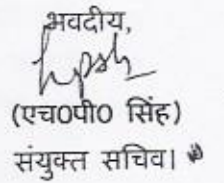 भवदीय,
(एच0पी0 सिंह)
संयुक्त सचिव।